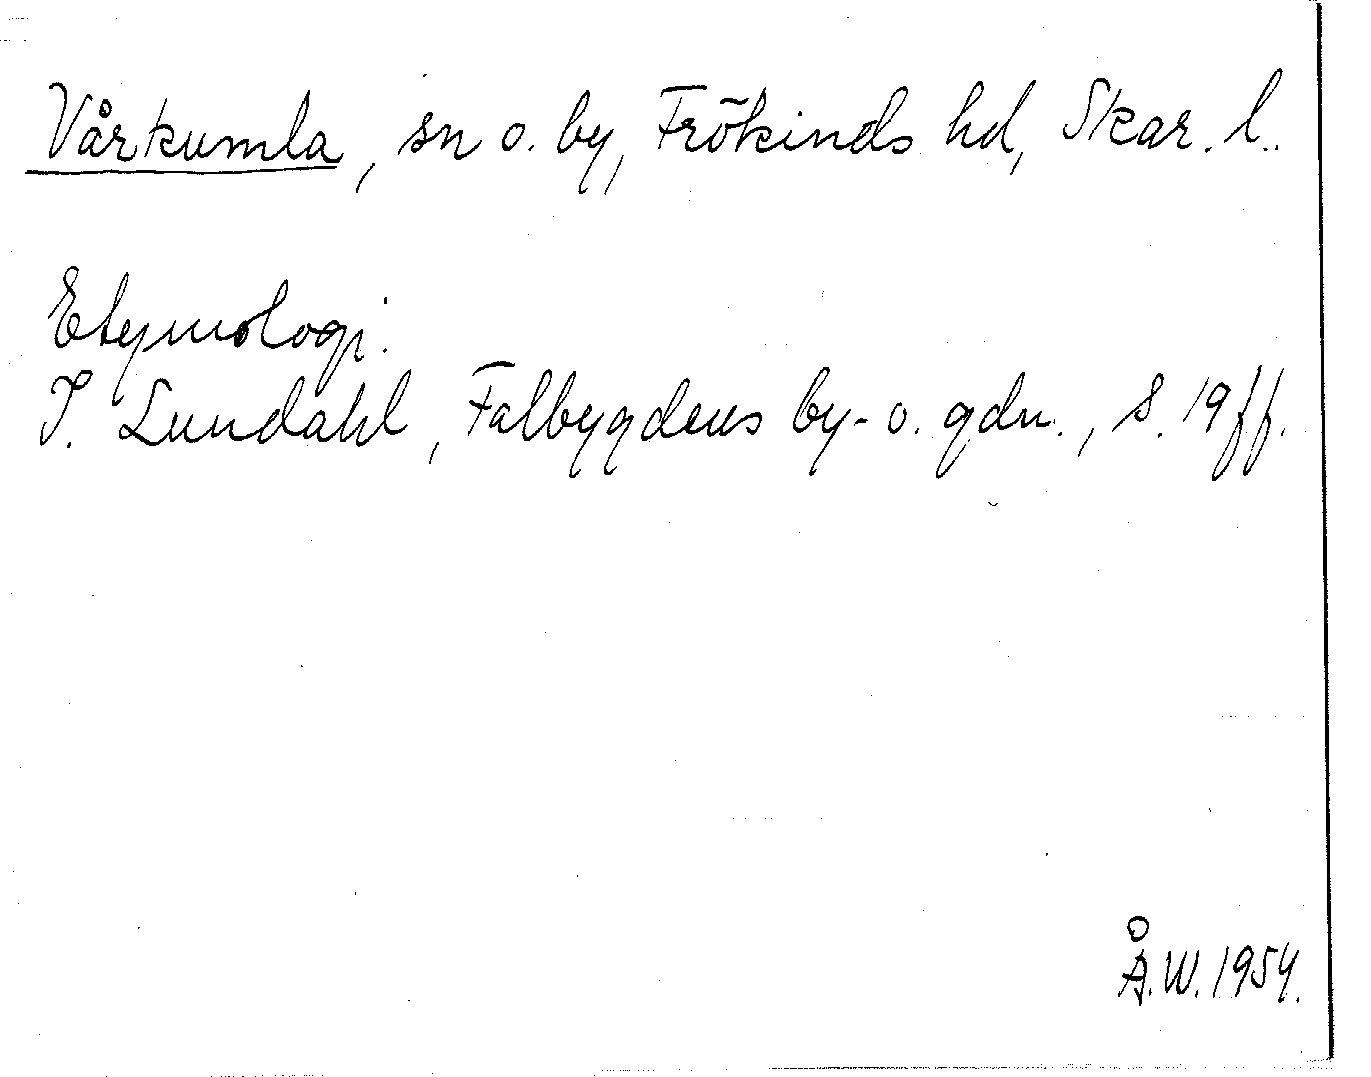 Vårkumla, sn o. by, Frökinds hd, Skar. l.
Etymologi.
I. Lundahl, Falbygdens by- o. gdn., s. 19 ff.
Å.W. 1954.